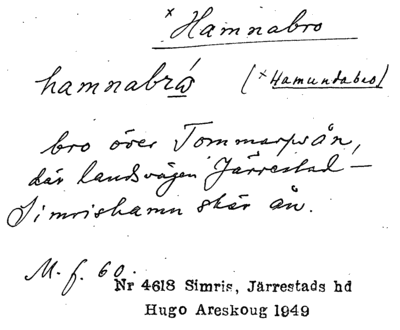 × Hamnabro
hamnabrǻ (× Hamundabro)
bro över Tommarpsån,
där landsvägen Järrestad –
Simrishamn skär ån.
M. f. 60.
Nr 4618 Simris, Järrestads hd
Hugo Areskoug 1949